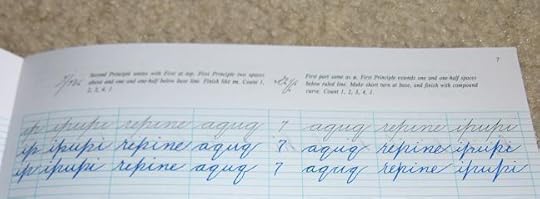 7
Second Principle unites with First at top. First Principle two spaces
above and one and one-half below base line. Finish like m. Count 1,
2, 3, 4, 1.
First part same as a. First Principle extends one and one-half spaces
below ruled line. Make short turn at base, and finish with compound
curve. Count 1, 2, 3, 4, 1.
ip ipupi repine aquq q aquq repine ipupi
ip ipupi repine aquq q aquq repine ipupi
ip ipupi repine aquq q aquq repine ipupi